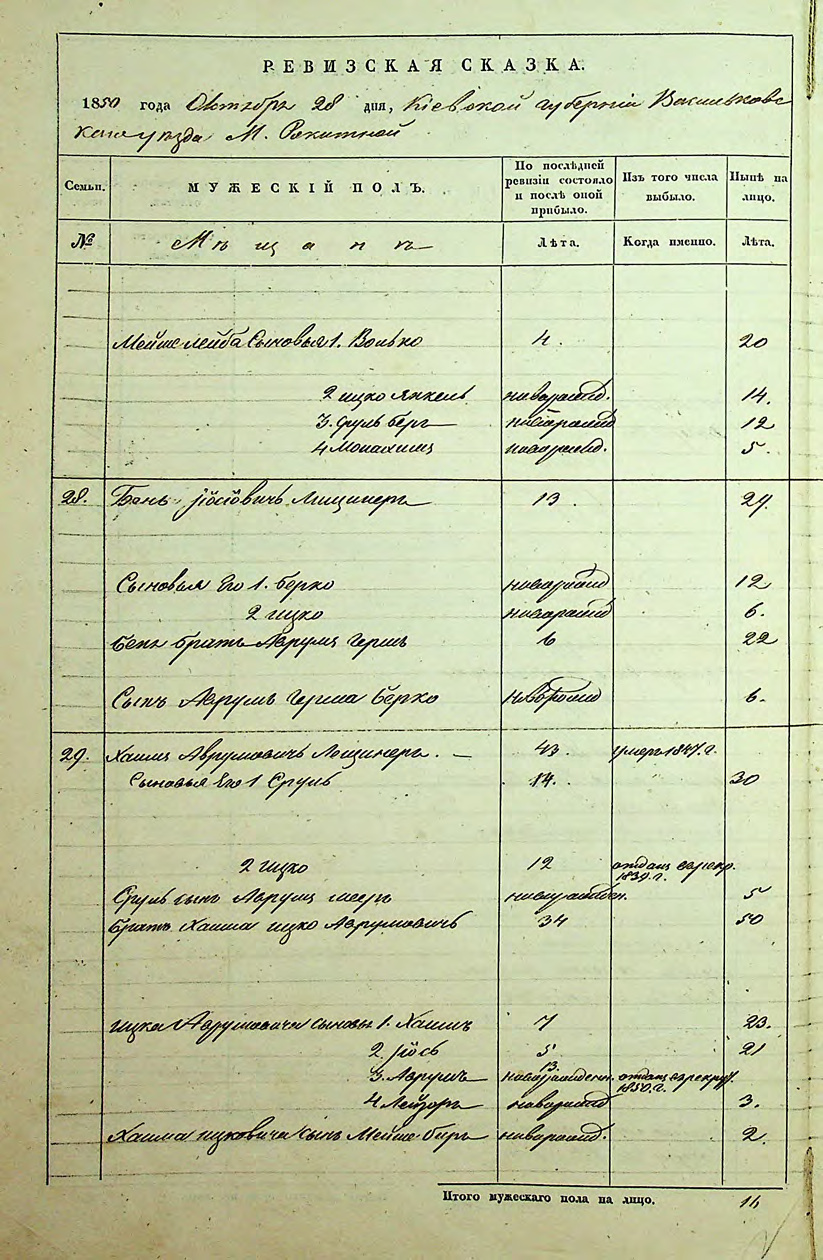 РЕВИЗСКАЯ СКАЗКА.
1850 года Октября 28 дня, Кіевской губерніи Васильковс
каго уѣзда М. Ракитной
Семьи. МУЖЕСКІЙ ПОЛЪ. По послѣдней ревизіи состояло и послѣ оной прибыло. Изъ того числа выбыло. Нынѣ на лицо.
№ Мѣщанъ Лѣта. Когда именно. Лѣта.
Мейше лейба Сыновья 1. Волько 4. 20
2 ицко Янкель новорожд. 14.
3. Сруль берг новорожд 12
4 Монахимъ новорожд. 5.
28. Бень Іосіовичъ 13. 29.
Сыновья Его 1. берко новорожд 12
2 ицко новорожд 6.
бень братъ Аврумъ Гершъ 6 22
Сынъ Аврумъ Герша берко новорожд 6.
29. Хаимъ Аврумовичъ Лещинеръ. 43. умеръ 1847. г.
Сыновья Его 1 Сруль 14. 30
2 ицко 12 отданъ врекр. 1839. г.
Сруль сынъ Аврумъ мееръ новорожден. 5
братъ Хаима ицко Аврумовичъ 34 50
ицка Аврумовича сыновья 1. Хаимъ 7 23.
2. Іось 5 21
3. Аврумъ новорожденн. 13. отданъ врекрут. 1850. г.
4 Лейзоръ новорожд 3.
Хаима ицковича сынъ Мейше-биръ новорожд. 2.
Итого мужескаго пола на лицо. 16